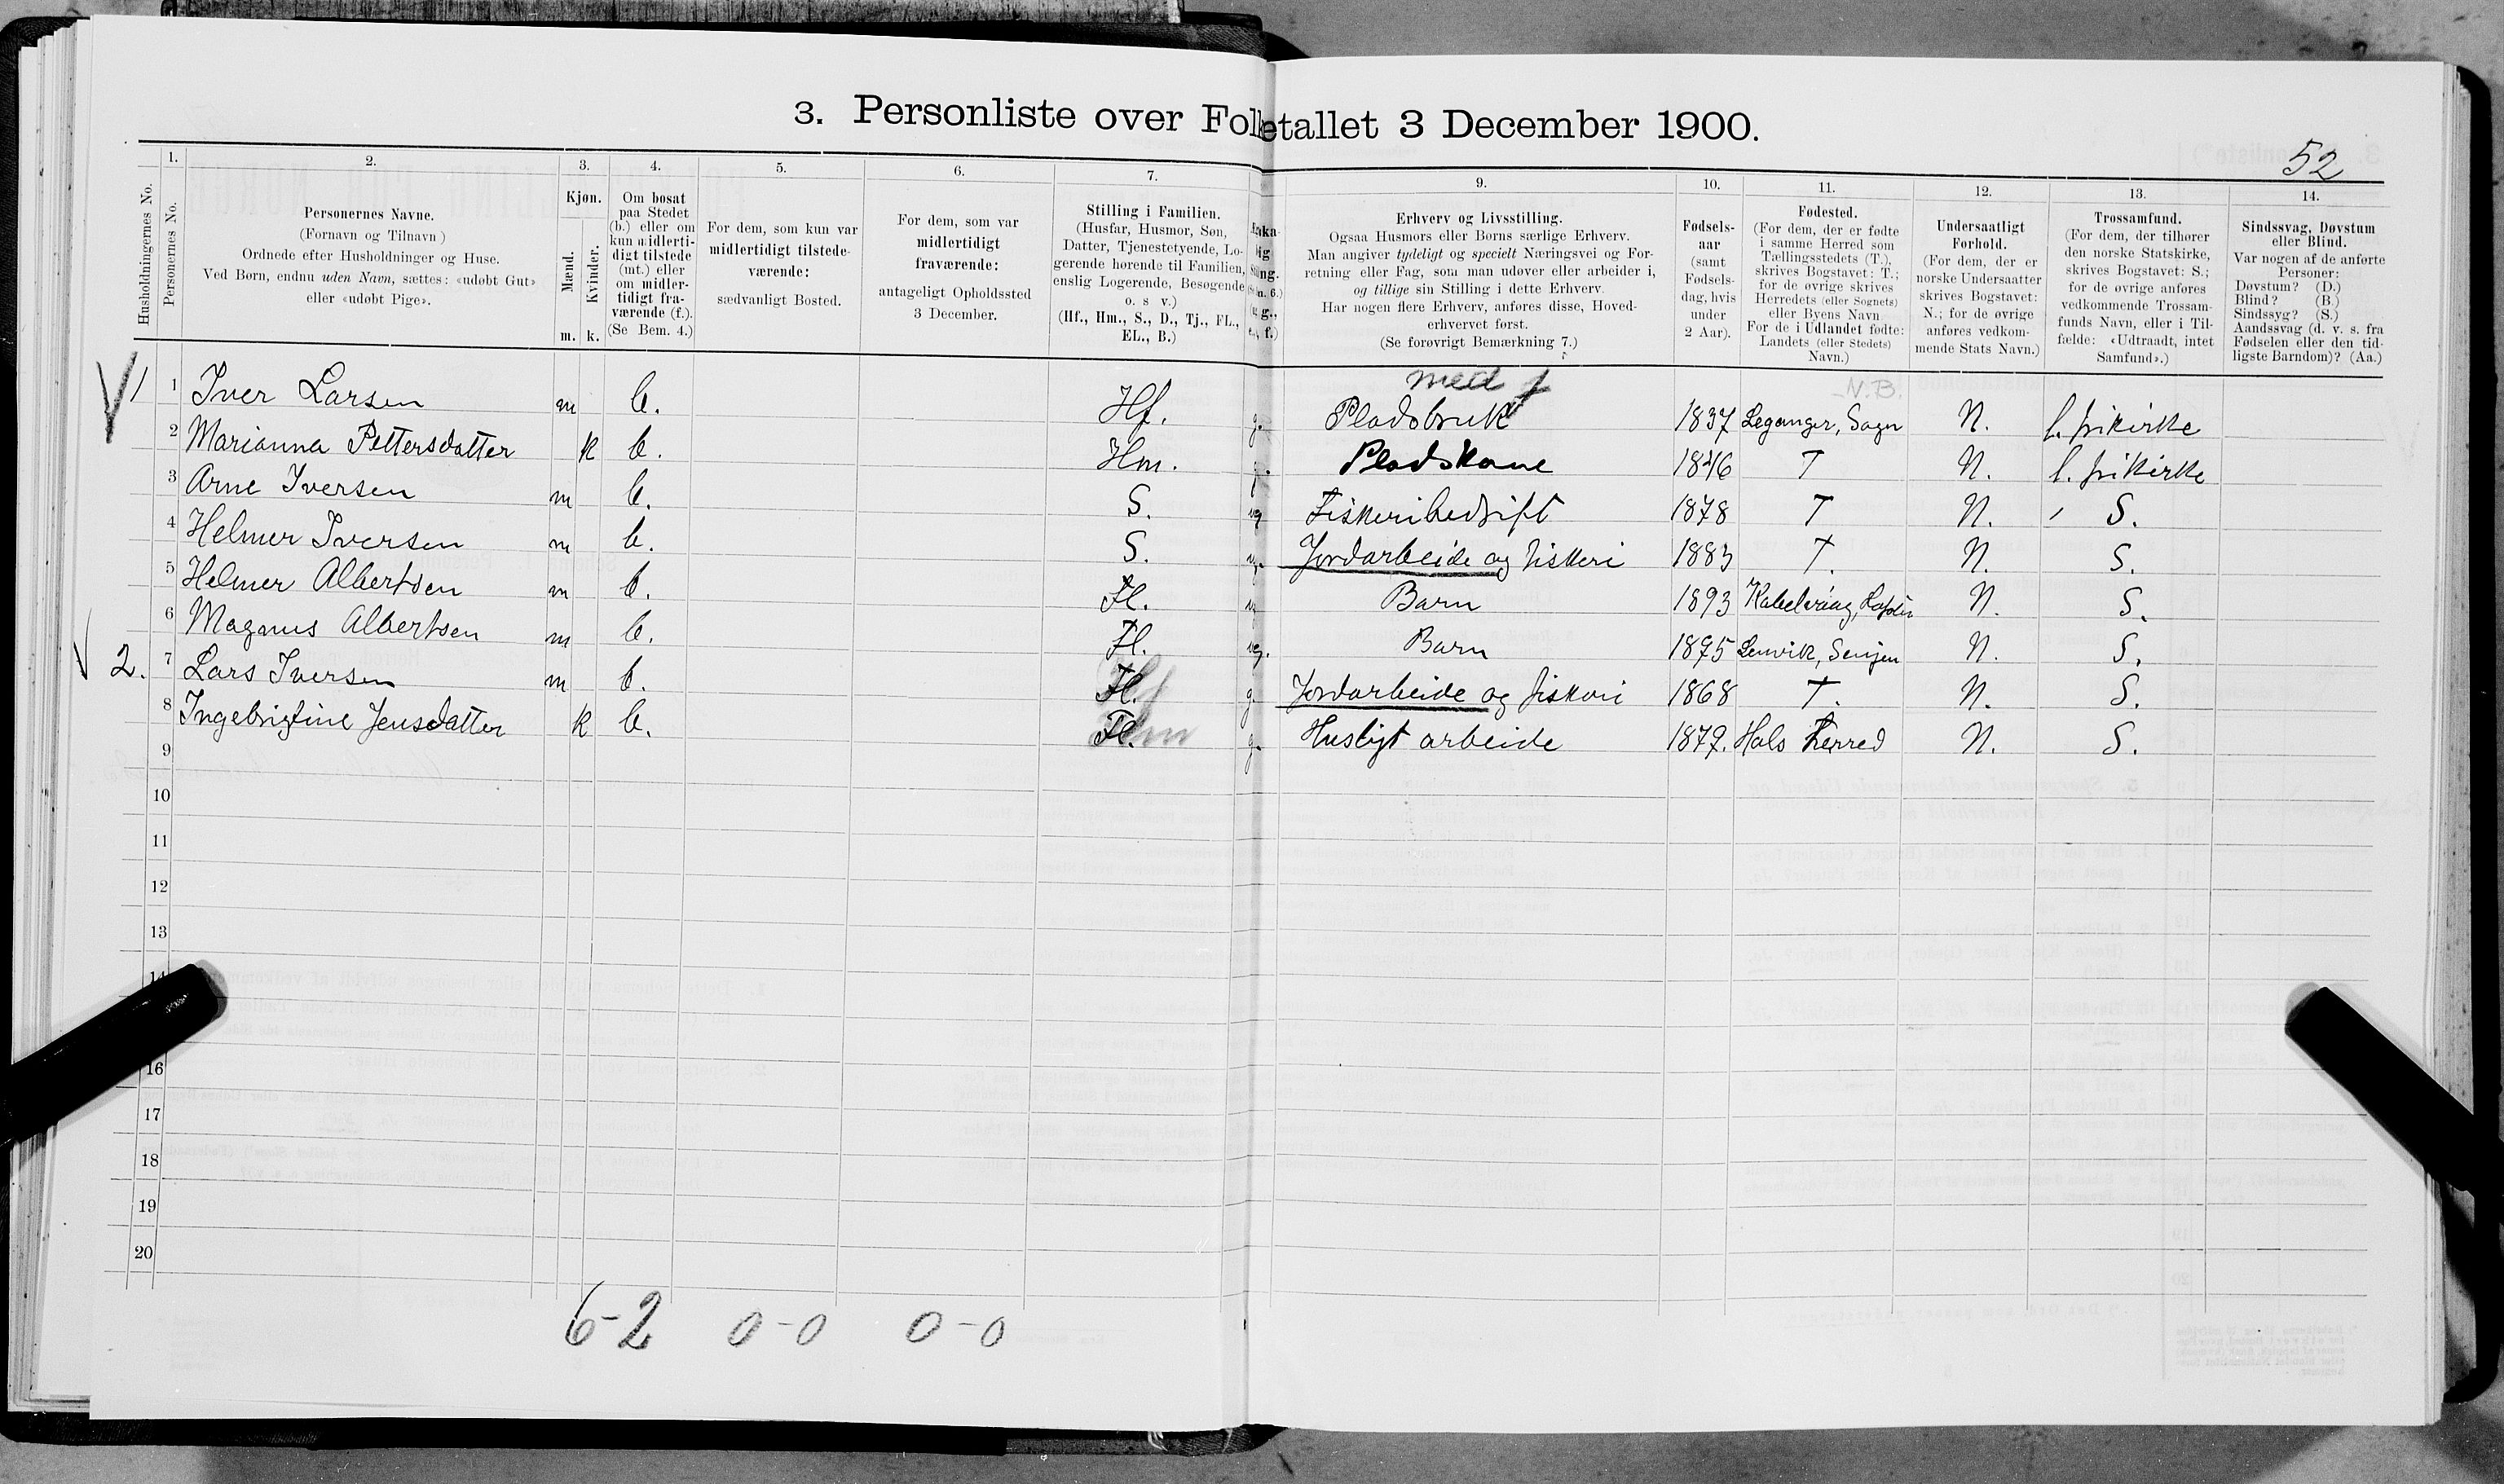 3. Personliste over Folketallet 3 December 1900.
52
Husholdningernes No.
1.
Personernes No.
2.
Personernes Navne.
(Fornavn og Tilnavn)
Ordnede efter Husholdninger og Huse.
Ved Børn, endnu uden Navn, sættes: «udøbt Gut»
eller «udøbt Pige».
3.
Kjøn.
Mænd.
Kvinder.
m. k.
4.
Om bosat
paa Stedet
(b.) eller om
kun midlerti-
digt tilstede
(mt.) eller
om midler-
tidigt fra-
værende (f.).
(Se Bem. 4.)
5.
For dem, som kun var
midlertidigt tilstede-
værende:
sædvanligt Bosted.
6.
For dem, som var
midlertidigt
fraværende:
antageligt Opholdssted
3 December.
7.
Stilling i Familien.
(Husfar, Husmor, Søn,
Datter, Tjenestetyende, Lo-
gerende hørende til Familien,
enslig Logerende, Besøgende
o. s v.)
(Hf., Hm., S., D., Tj., FL.,
EL., B.)
9.
Erhverv og Livsstilling.
Ogsaa Husmors eller Børns særlige Erhverv.
Man angiver tydeligt og specielt Næringsvei og For-
retning eller Fag, som man udøver eller arbeider i,
og tillige sin Stilling i dette Erhverv.
Har nogen flere Erhverv, anføres disse, Hoved-
erhvervet først.
(Se forøvrigt Bemærkning 7.)
10.
Fødsels-
aar
(samt
Fødsels-
dag, hvis
under
2 Aar).
11.
Fødested.
(For dem, der er fødte
i samme Herred som
Tællingsstedets (T.),
skrives Bogstavet: T.;
for de øvrige skrives
Herredets (eller Sognets)
eller Byens Navn
For de i Udlandet fødte:
Landets (eller Stedets)
Navn.)
12.
Undersaatligt
Forhold.
(For dem, der er
norske Undersaatter
skrives Bogstavet:
N.; for de øvrige
anføres vedkom-
mende Stats Navn.)
13.
Trossamfund.
(For dem, der tilhører
den norske Statskirke,
skrives Bogstavet: S.;
for de øvrige anføres
vedkommende Trossam-
funds Navn, eller i Til-
fælde: «Udtraadt, intet
Samfund».)
14.
Sindssvag, Døvstum
eller Blind.
Var nogen af de anførte
Personer:
Døvstum? (D.)
Blind? (B.)
Sindssyg? (S.)
Aandssvag (d. v. s. fra
Fødselen eller den tid-
ligste Barndom)? (Aa.)
med f N.B.
1 1 Iver Larsen m b. Hf. g. Pladsbruk 1837 Leganger, Sogn N. l. frikirke
2 Marianna Pettersdatter k b. Hm. g. Pladskone 1846 T N. l. frikirke
3 Arne Iversen m b. S. ug Fiskeribedrift 1878 T N. S.
4 Helmer Iversen m b. S. ug. Jordarbeide og fiskeri 1883 T. N. S.
5 Helmer Albertsen m b. Fl. ug Barn 1893 Kabelvaag, Lofoten N. S.
6 Magnus Albertsen m b. Fl. ug. Barn 1895 Lenvik, Senjen N. S.
2. 7 Lars Iversen m b. Fl. Hf g. Jordarbeide og fiskeri 1868 T. N. S.
8 Ingebrigtine Jensdatter k b. Fl. Hm g. Husligt arbeide 1879. Hals herred N. S.
9
10
11
12
13
14
16
17
18
19
20
6-2 0-0 0-0